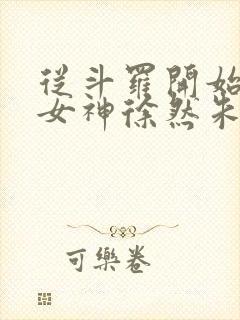 從斗羅開始
女神徐然朱
可樂卷